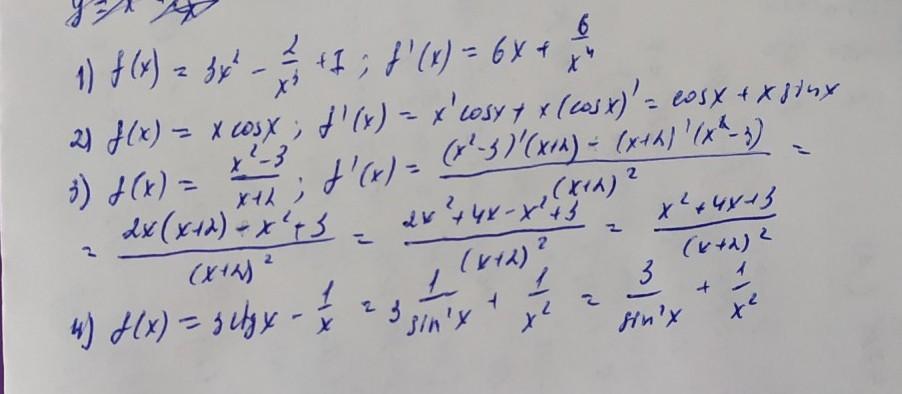 y = x
1) f(x) = 3x² - 2/x³ + 1 ; f'(x) = 6x + 6/x⁴
2) f(x) = x cosx ; f'(x) = x' cosx + x (cosx)' = cosx + x sinx
3) f(x) = (x²-3)/(x+2) ; f'(x) = ((x²-3)'(x+2) - (x+2)'(x²-3))/(x+2)² =
= (2x(x+2) - x²+3)/(x+2)² = (2x²+4x-x²+3)/(x+2)² = (x²+4x+3)/(x+2)²
4) f(x) = 3ctgx - 1/x = 3 1/sin²x + 1/x² = 3/sin²x + 1/x²